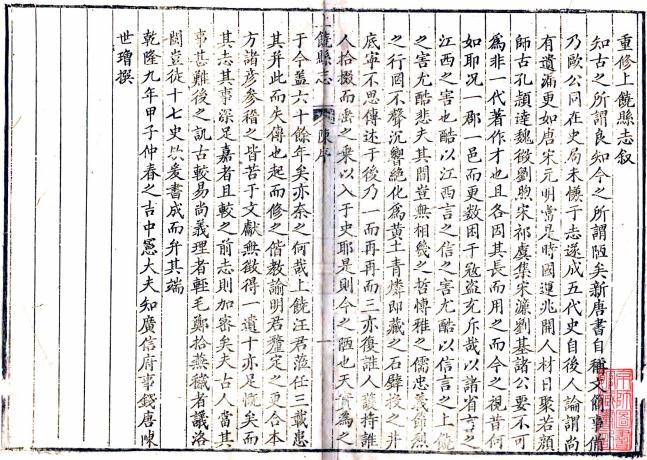 重修上饒縣志叙
知古之所謂良知今之所謂陋矣新唐書自稱文簡事備
乃歐公同在史局未慊于志遂成五代史自後人論謂尚
有遺漏更如唐宋元明當足時國運兆開人材日聚若顏
師古孔頴達魏徵劉煦宋祁虞集宋濂劉基諸公要不可
為非一代著作才也且各因其長而用之而今之視昔何
如耶况一郡一邑而更数困于冦盜充斥哉以諸省言之
江西之害也酷以江西言之信之害尤酷以信言之上饒
之害尤酷悲夫其間豈無相幾之哲慱雅之儒忠義節烈
之行罔不聲沉響絶化為黄土青燐即藏之石壁投之井
底寧不思傳述于後乃一而再再而三亦復誰人護持誰
人拾掇而壽之乗以入于史耶是則今之陋也天實為之
于今盖六十餘年矣亦奈之何哉上饒汪君蒞任三載患
其并此而失傳也起而修之偕教諭明君釐定之更合本
方諸彦参稽之皆苦于文獻無徴得一遺十亦足慨矣而
其志其事深足嘉者且較之前志則加審矣夫古人當其
事甚難後之訊古較易尚義理者輕毛鄭拾蕪穢者議洛
閩豈徒十七史㢤爰書成而弁其端
乾隆九年甲子仲春之吉中憲大夫知廣信府事錢唐陳
世璔撰
上饒縣志
陳序
一